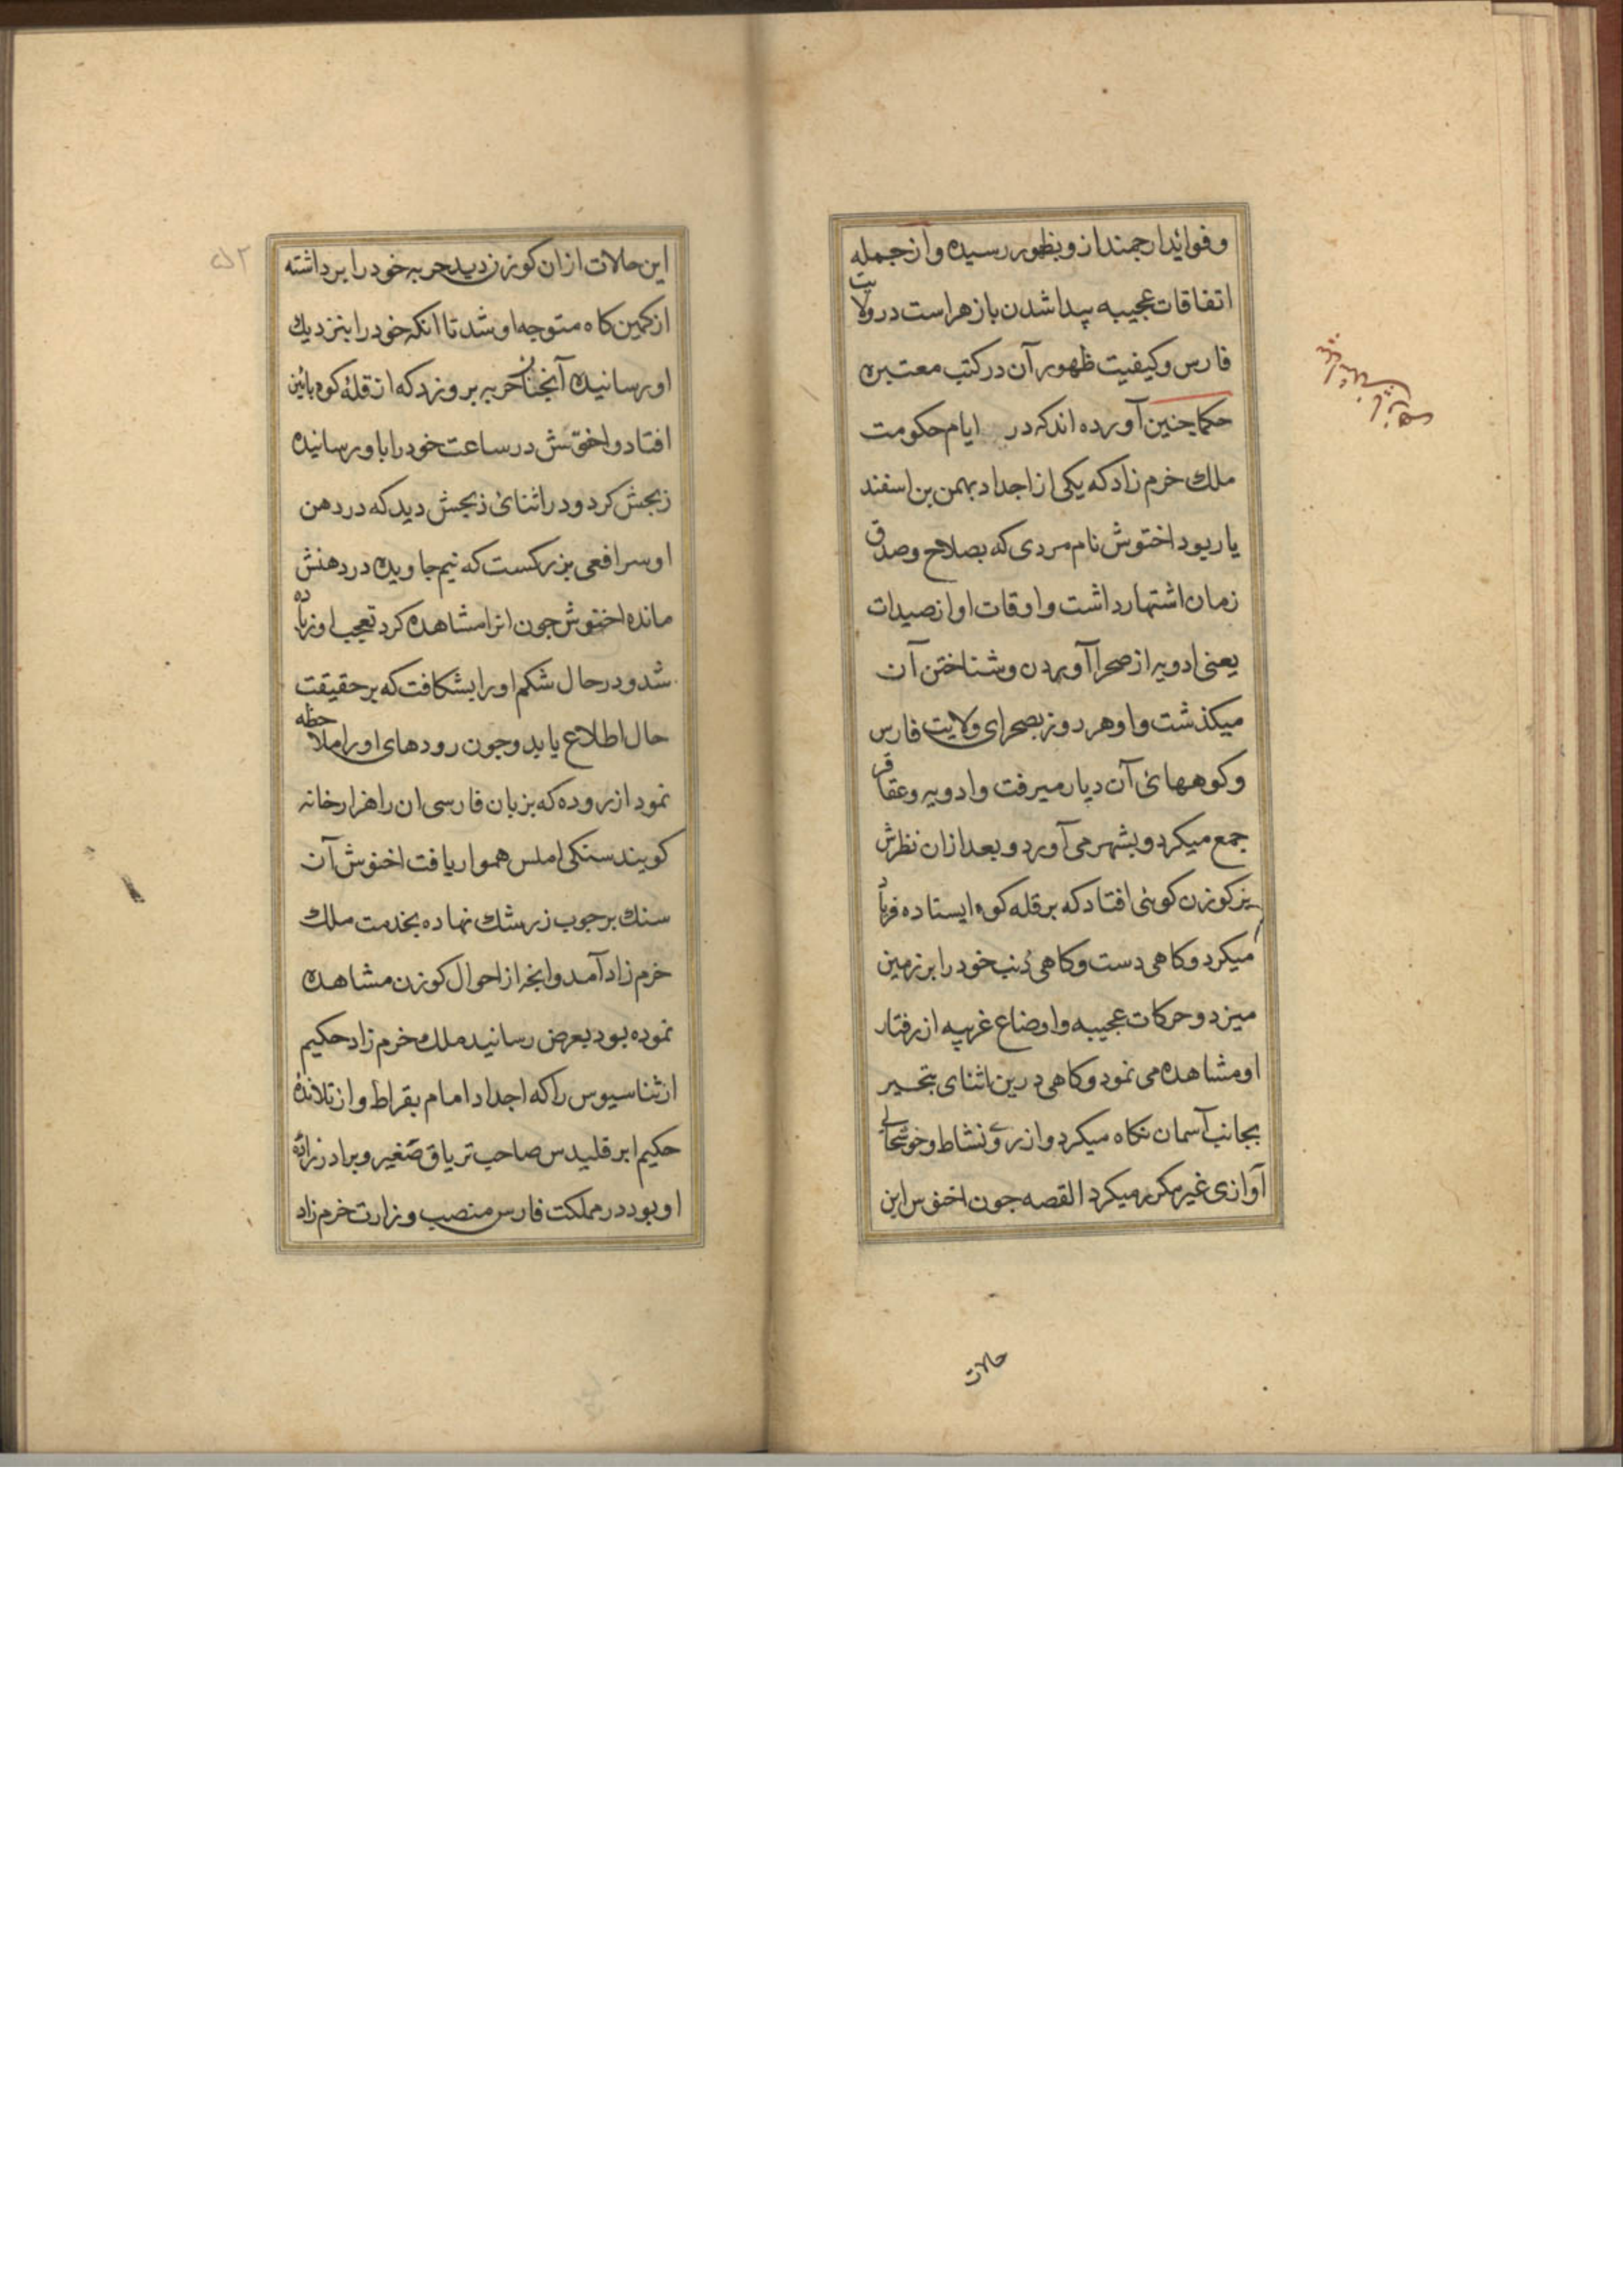 و فوائد ارجمند از و بظهور رسیده و از جمله
اتفاقات عجیبه پیدا شدن بازهر است در ولایت
فارس و کیفیت ظهور آن در کتب معتبره
حکما چنین آورده اند که در ایام حکومت
ملك خرم زاد که یکی از اجداد بهمن بن اسفند
یار بود اختوش نام مردی که بصلاح و صدق
زمان اشتهار داشت و اوقات او از صیدات
یعنی ادویه از صحرا آوردن و شناختن آن
میکذشت و او هر روز بصحرای ولایت فارس
و کوههای آن دیار میرفت و ادویه و عقاقر
جمع میکرد و بشهر می آورد و بعد ازان نظرش
بر کوزن کوهی افتاد که بر قله کوه ایستاده فریاد
میکرد و کاهی دست و کاهی دنب خود را بر زمین
میزد و حرکات عجیبه و اوضاع غریبه از رفتار
او مشاهده می نمود و کاهی درین اثنای بتحیر
بجانب آسمان نکاه میکرد و از روی نشاط و خوشحالی
آوازی غیر مکرر میکرد القصه جون اخنوس این
حالات
این حالات ازان کوزن دید حربه خود را برداشته
از کمین کاه متوجه او شد تا انکه خود را بنزدیك
او رسانیده آنجنان حربه بر و زد که از قله کوه بائین
افتاد و اخنوش در ساعت خود را باو رسانیده
ذبحش کرد و در اثنای ذبحش دید که در دهن
او سر افعی بزرکست که نیم جاویده در دهنش
مانده اختوش جون انرا مشاهده کرد تعجب او زیاده
شد و در حال شکم او را بشکافت که بر حقیقت
حال اطلاع یابد و جون رودهای او را ملاحظه
نمود از روده که بزبان فارسی ان را هزار خانه
کویند سنکی املس هموار یافت اخنوش آن
سنك بر جوب زرشك نهاده بخدمت ملك
خرم زاد آمد و انجه از احوال کوزن مشاهده
نموده بود بعرض رسانید ملك خرم زاد حکیم
ارثناسیوس را که اجداد امام بقراط و از تلامذه
حکیم ابرقلیدس صاحب تریاق صغیر و برادرزاده
او بود در مملکت فارس منصب وزارت خرم زاد